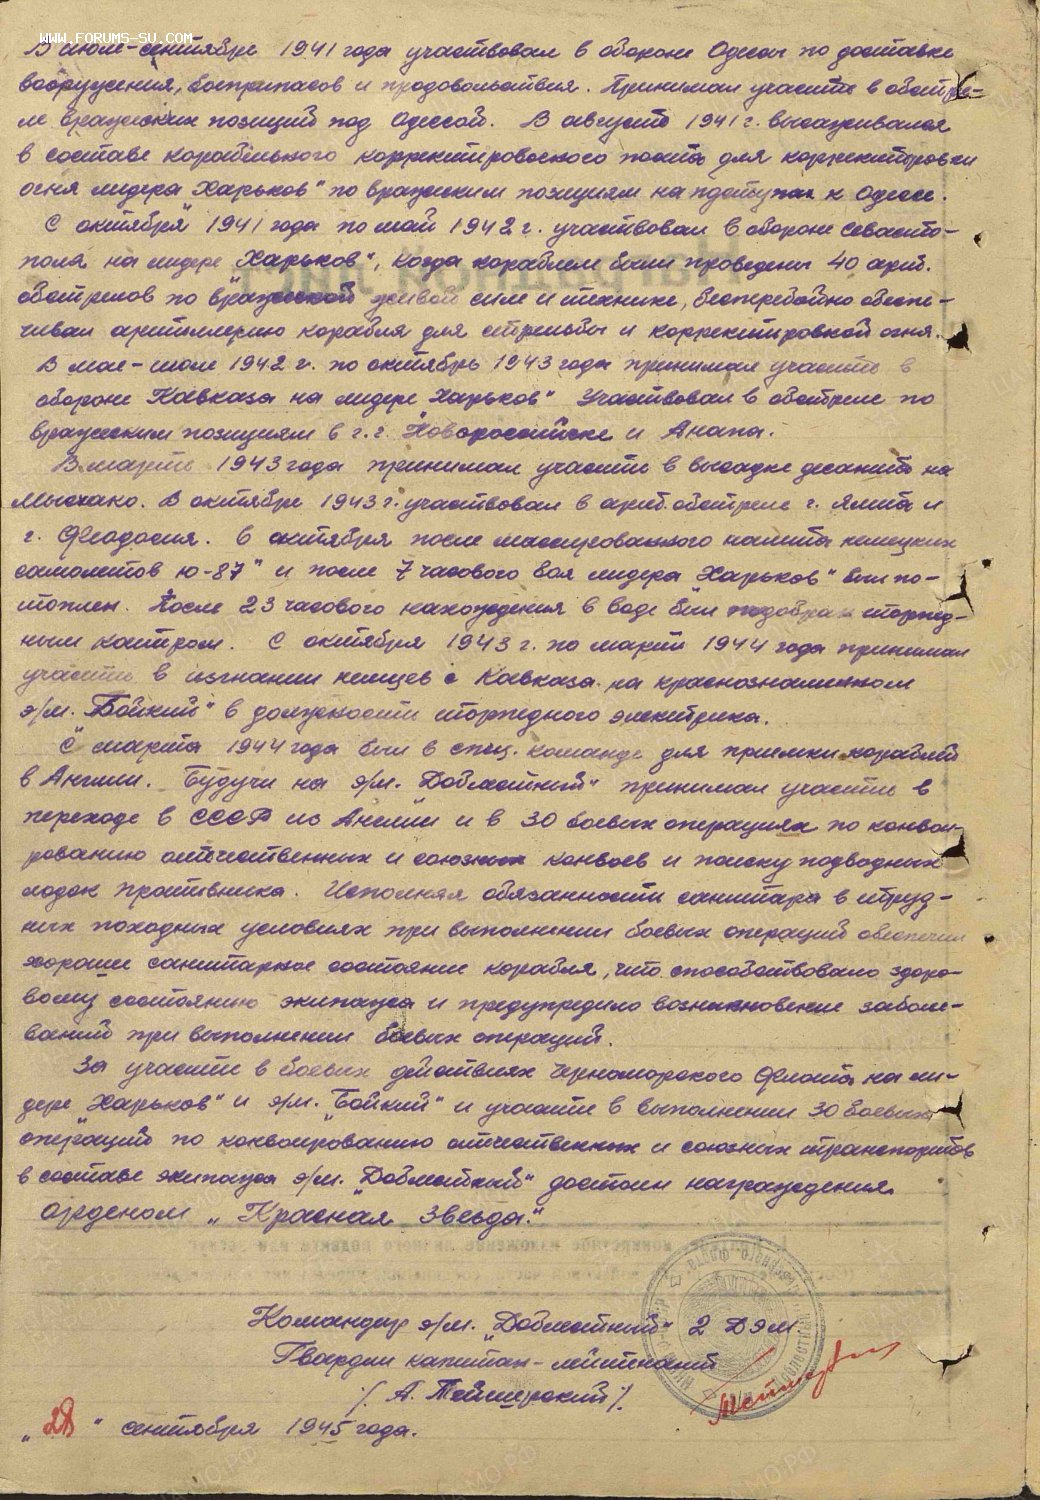 www.forums-su.com
В июле-сентябре 1941 года участвовал в обороне Одессы по доставке
вооружения, боеприпасов и продовольствия. Принимал участие в обстре-
ле вражеских позиций под Одессой. В августе 1941 г. высаживался
в составе корабельного корректировочного поста для корректировки
огня лидера Харьков" по вражеским позициям на подступах к Одессе.
С октября 1941 года по май 1942 г. участвовал в обороне Севасто-
поля на лидере „Харьков", когда кораблем были проведены 40 арт.
обстрелов по вражеской живой силе и технике, бесперебойно обеспе-
чивал артиллерию корабля для стрельбы и корректировкой огня.
В мае-июле 1942 г. по октябрь 1943 года принимал участие в
обороне Кавказа на лидере Харьков" Участвовал в обстреле по
вражеским позициям в г.г. Новороссийске и Анапа.
В марте 1943 года принимал участие в высадке десанта на
Мысхако. В октябре 1943 г. участвовал в арт. обстреле г. Ялта и
г. Феодосия. 6 октября после массированного налёта немецких
самолётов Ю-87" и после 7 часового боя лидера Харьков" был по-
топлен. После 23 часового нахождения в воде был подобран торпед-
ным катером. С октября 1943 г. по март 1944 года принимал
участие в изгнании немцев с Кавказа на краснознаменном
э/м. „Бойкий" в должности торпедного электрика.
С марта 1944 года был в спец. команде для приемки кораблей
в Англии. Будучи на э/м. Доблестный" принимал участие в
переходе в СССР из Англии и в 30 боевых операциях по конвои-
рованию отечественных и союзных конвоев и поиску подводных
лодок противника. Исполняя обязанности санитара в труд-
ных походных условиях при выполнении боевых операций обеспечил
хорошее санитарное состояние корабля, что способствовало здоро-
вому состоянию экипажа и предупредило возникновение заболе-
ваний при выполнении боевых операций.
За участие в боевых действиях Черноморского Флота на ли-
дере „Харьков" и э/м. „Бойкий" и участие в выполнении 30 боевых
операций по конвоированию отечественных и союзных транспортов
в составе экипажа э/м. „Доблестный" достоин награждения
орденом „Красная Звезда".
Командир э/м. „Доблестный" 2 ДЭМ.
Гвардии капитан-лейтенант
/ А. /
„28" сентября 1945 года.